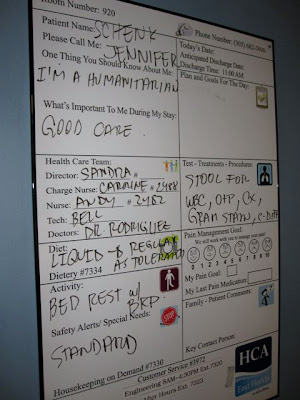 Room Number: 920
Patient Name: SCHENK
Please Call Me: JENNIFER
One Thing You Should Know About Me:
I'M A HUMANITARIAN
What's Important To Me During My Stay:
GOOD CARE.
Phone Number:
Today's Date:
Anticipated Discharge Date:
Discharge Time: 11:00 AM
Plan and Goals For The Day:
Health Care Team:
Director: SANDRA
Charge Nurse: CARRINE #2488
Nurse: ANDY #2182
Tech: BELL
Doctors: DR RODRIGUEZ
Diet: LIQUID → REGULAR
AS TOLERATED
Dietery #7334
Activity:
BED REST w/
BRP.
Safety Alerts/ Special Needs:
STOP
STANDARD
Housekeeping on Demand #7330
Test - Treatments - Procedures:
STOOL FOR
WBC, O+P, CX,
GRAM STAIN, C-DIFF
Pain Management Goal:
We will work with you to manage your pain!
My Pain Goal:
My Last Pain Medication:
Family - Patient Comments:
Key Contact Person:
Customer Service #3972
Engineering 8AM-4:30PM Ext.7320
After Hours Ext. 7323
HCA
East Florida